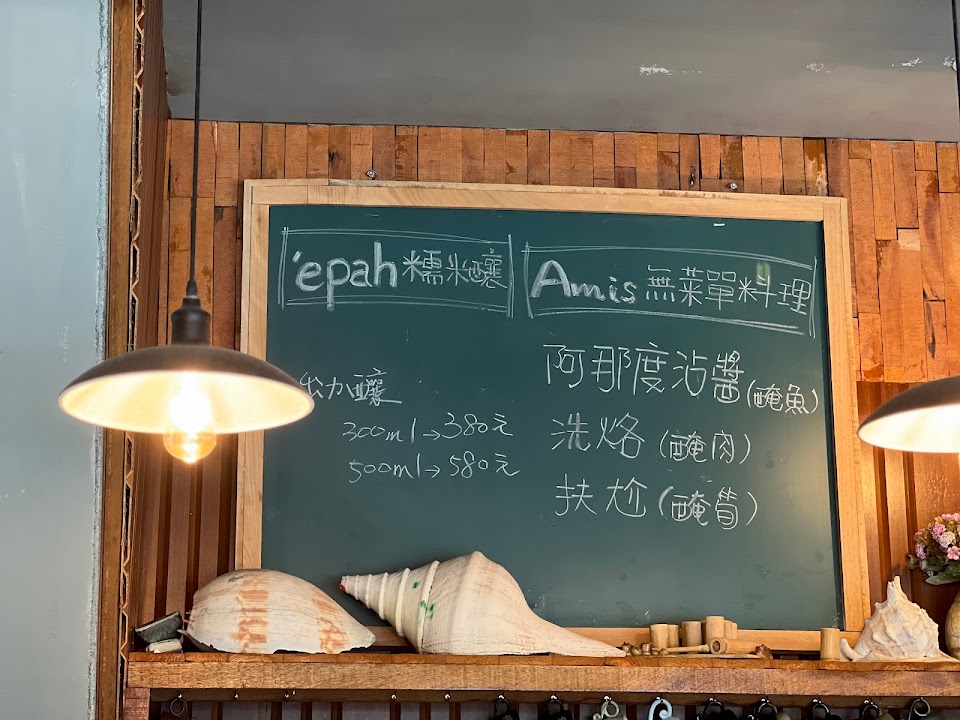 'epah 糯米釀
出力釀
300ml→380元
500ml→580元
Amis 無菜單料理
阿那度沾醬(醃魚)
洗烙(醃肉)
扶尬(醃筍)